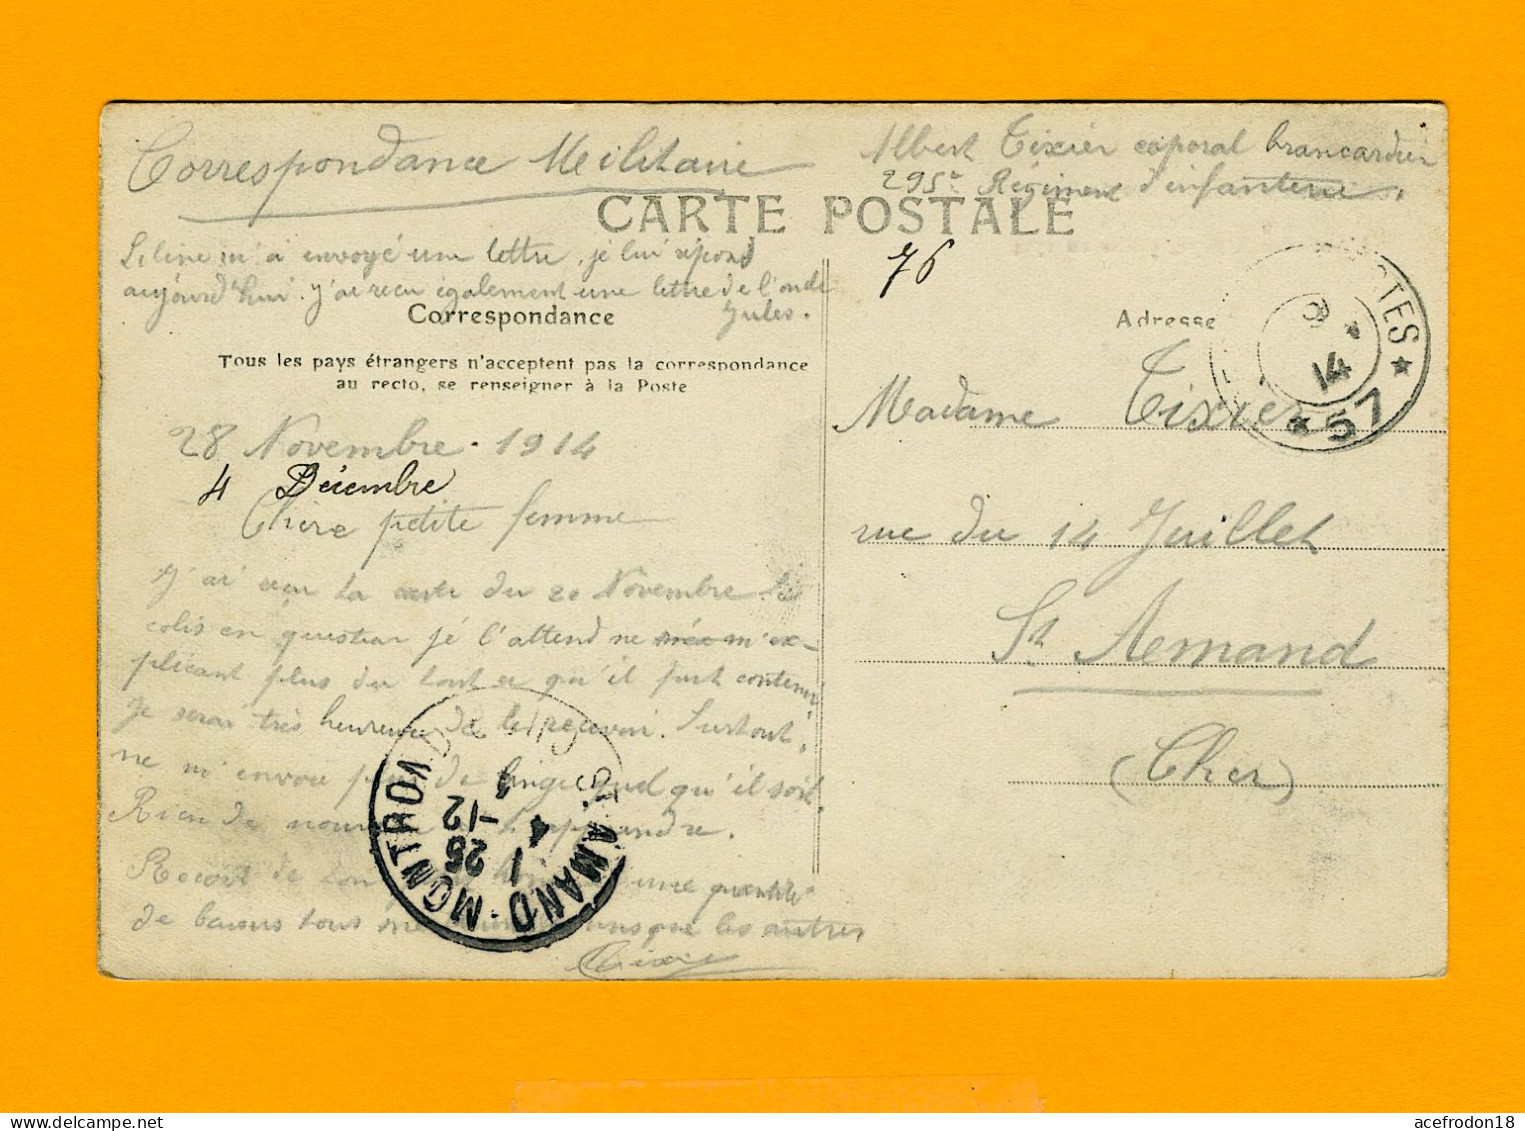 Correspondance Militaire
Albert Tixier caporal brancardier
295e Régiment d'infanterie.
CARTE POSTALE
Liline m'a envoyé une lettre, je lui répond
aujourd'hui. J'ai reçu également une lettre de l'oncle
Jules.
76
Correspondance
Adresse
Tous les pays étrangers n'acceptent pas la correspondance
au recto, se renseigner à la Poste
28 Novembre. 1914
4 Décembre
Chère petite femme
J'ai reçu ta carte du 20 Novembre. Le
colis en question je l'attend ne m'ex-
plicant plus du tout ce qu'il peut contenir
Je serai très heureux de le recevoir. Surtout,
ne m'envoie pas de linge quel qu'il soit.
Rien de nouveau à t'apprendre.
Reçoit de ton une quantité
de baisers tous que les autres
Tixier
Madame Tixier
rue du 14 Juillet
St Amand
(Cher)
POSTES
14
* 57 *
ST AMAND-MONTROND
CHER
1
25
-12
14
acefrodon18